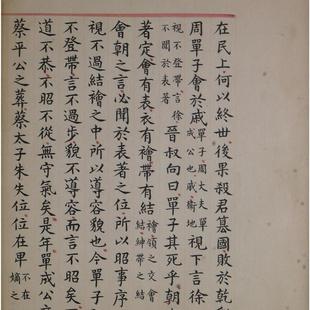 在民上何以終世後果殺君篡國敗於乾
周單子會於戚單子周大夫單成公也戚衛地視下言徐
視不登帶言徐不聞於表著晉叔向曰單子其死乎朝
著定會有表衣有襘帶有結襘領之交會結紳帶之結
會朝之言必聞於表著之位所以昭事序
視不過結襘之中所以導容貌也今單子
不登帶言不過步貌不導容而言不昭矣
道不恭不昭不從無守氣矣是年單成公
蔡平公之葬蔡太子朱失位位在卑不在嫡之